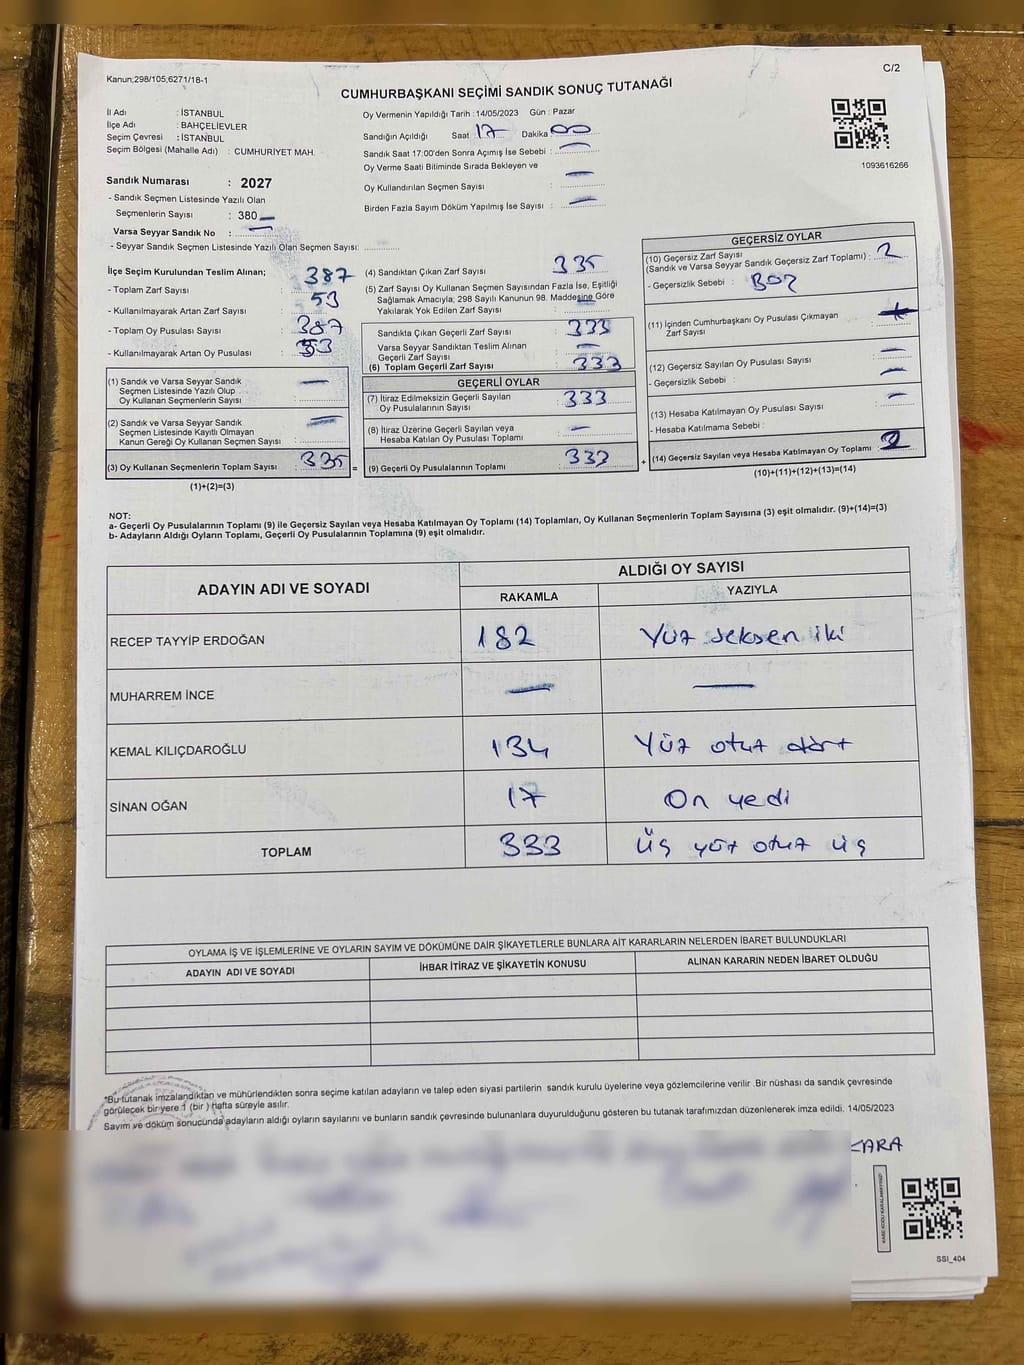 Kanun;298/105;6271/18-1
C/2
CUMHURBAŞKANI SEÇİMİ SANDIK SONUÇ TUTANAĞI
İl Adı : İSTANBUL
İlçe Adı : BAHÇELİEVLER
Seçim Çevresi : İSTANBUL
Seçim Bölgesi (Mahalle Adı) : CUMHURİYET MAH.
Sandık Numarası : 2027
- Sandık Seçmen Listesinde Yazılı Olan
Seçmenlerin Sayısı : 380
Varsa Seyyar Sandık No : —
- Seyyar Sandık Seçmen Listesinde Yazılı Olan Seçmen Sayısı: ............
Oy Vermenin Yapıldığı Tarih : 14/05/2023 Gün : Pazar
Sandığın Açıldığı Saat 17 Dakika 00
Sandık Saat 17:00'den Sonra Açımış İse Sebebi : —
Oy Verme Saati Bitiminde Sırada Bekleyen ve
Oy Kullandırılan Seçmen Sayısı : —
Birden Fazla Sayım Döküm Yapılmış İse Sayısı : —
1093616266
İlçe Seçim Kurulundan Teslim Alınan;
- Toplam Zarf Sayısı : 387
- Kullanılmayarak Artan Zarf Sayısı : 53
- Toplam Oy Pusulası Sayısı : 387
- Kullanılmayarak Artan Oy Pusulası : 53
(1) Sandık ve Varsa Seyyar Sandık
Seçmen Listesinde Yazılı Olup
Oy Kullanan Seçmenlerin Sayısı : —
(2) Sandık ve Varsa Seyyar Sandık
Seçmen Listesinde Kayıtlı Olmayan
Kanun Gereği Oy Kullanan Seçmen Sayısı : —
(3) Oy Kullanan Seçmenlerin Toplam Sayısı : 335 =
(1)+(2)=(3)
(4) Sandıktan Çıkan Zarf Sayısı : 335
(5) Zarf Sayısı Oy Kullanan Seçmen Sayısından Fazla İse, Eşitliği
Sağlamak Amacıyla, 298 Sayılı Kanunun 98. Maddesine Göre
Yakılarak Yok Edilen Zarf Sayısı :
Sandıkta Çıkan Geçerli Zarf Sayısı : 333
Varsa Seyyar Sandıktan Teslim Alınan
Geçerli Zarf Sayısı : —
(6) Toplam Geçerli Zarf Sayısı : 333
GEÇERLİ OYLAR
(7) İtiraz Edilmeksizin Geçerli Sayılan
Oy Pusulalarının Sayısı : 333
(8) İtiraz Üzerine Geçerli Sayılan veya
Hesaba Katılan Oy Pusulası Toplamı : —
(9) Geçerli Oy Pusulalarının Toplamı : 333 +
GEÇERSİZ OYLAR
(10) Geçersiz Zarf Sayısı
(Sandık ve Varsa Seyyar Sandık Geçersiz Zarf Toplamı) : 2
- Geçersizlik Sebebi : Boz
(11) İçinden Cumhurbaşkanı Oy Pusulası Çıkmayan
Zarf Sayısı
(12) Geçersiz Sayılan Oy Pusulası Sayısı : —
- Geçersizlik Sebebi : —
(13) Hesaba Katılmayan Oy Pusulası Sayısı : —
- Hesaba Katılmama Sebebi :
(14) Geçersiz Sayılan veya Hesaba Katılmayan Oy Toplamı : 2
(10)+(11)+(12)+(13)=(14)
NOT:
a- Geçerli Oy Pusulalarının Toplamı (9) ile Geçersiz Sayılan veya Hesaba Katılmayan Oy Toplamı (14) Toplamları, Oy Kullanan Seçmenlerin Toplam Sayısına (3) eşit olmalıdır. (9)+(14)=(3)
b- Adayların Aldığı Oyların Toplamı, Geçerli Oy Pusulalarının Toplamına (9) eşit olmalıdır.
ADAYIN ADI VE SOYADI
ALDIĞI OY SAYISI
RAKAMLA YAZIYLA
RECEP TAYYİP ERDOĞAN 182 Yüz seksen iki
MUHARREM İNCE — —
KEMAL KILIÇDAROĞLU 134 Yüz otuz dört
SİNAN OĞAN 17 On yedi
TOPLAM 333 Üç yüz otuz üç
OYLAMA İŞ VE İŞLEMLERİNE VE OYLARIN SAYIM VE DÖKÜMÜNE DAİR ŞİKAYETLERLE BUNLARA AİT KARARLARIN NELERDEN İBARET BULUNDUKLARI
ADAYIN ADI VE SOYADI İHBAR İTİRAZ VE ŞİKAYETİN KONUSU ALINAN KARARIN NEDEN İBARET OLDUĞU
*Bu tutanak imzalandıktan ve mühürlendikten sonra seçime katılan adayların ve talep eden siyasi partilerin sandık kurulu üyelerine veya gözlemcilerine verilir .Bir nüshası da sandık çevresinde
görülecek bir yere 1 (bir ) hafta süreyle asılır.
Sayım ve döküm sonucunda adayların aldığı oyların sayılarını ve bunların sandık çevresinde bulunanlara duyurulduğunu gösteren bu tutanak tarafımızdan düzenlenerek imza edildi. 14/05/2023
KARA
KARE KODU KARALAMAYINIZ!
SSI_404